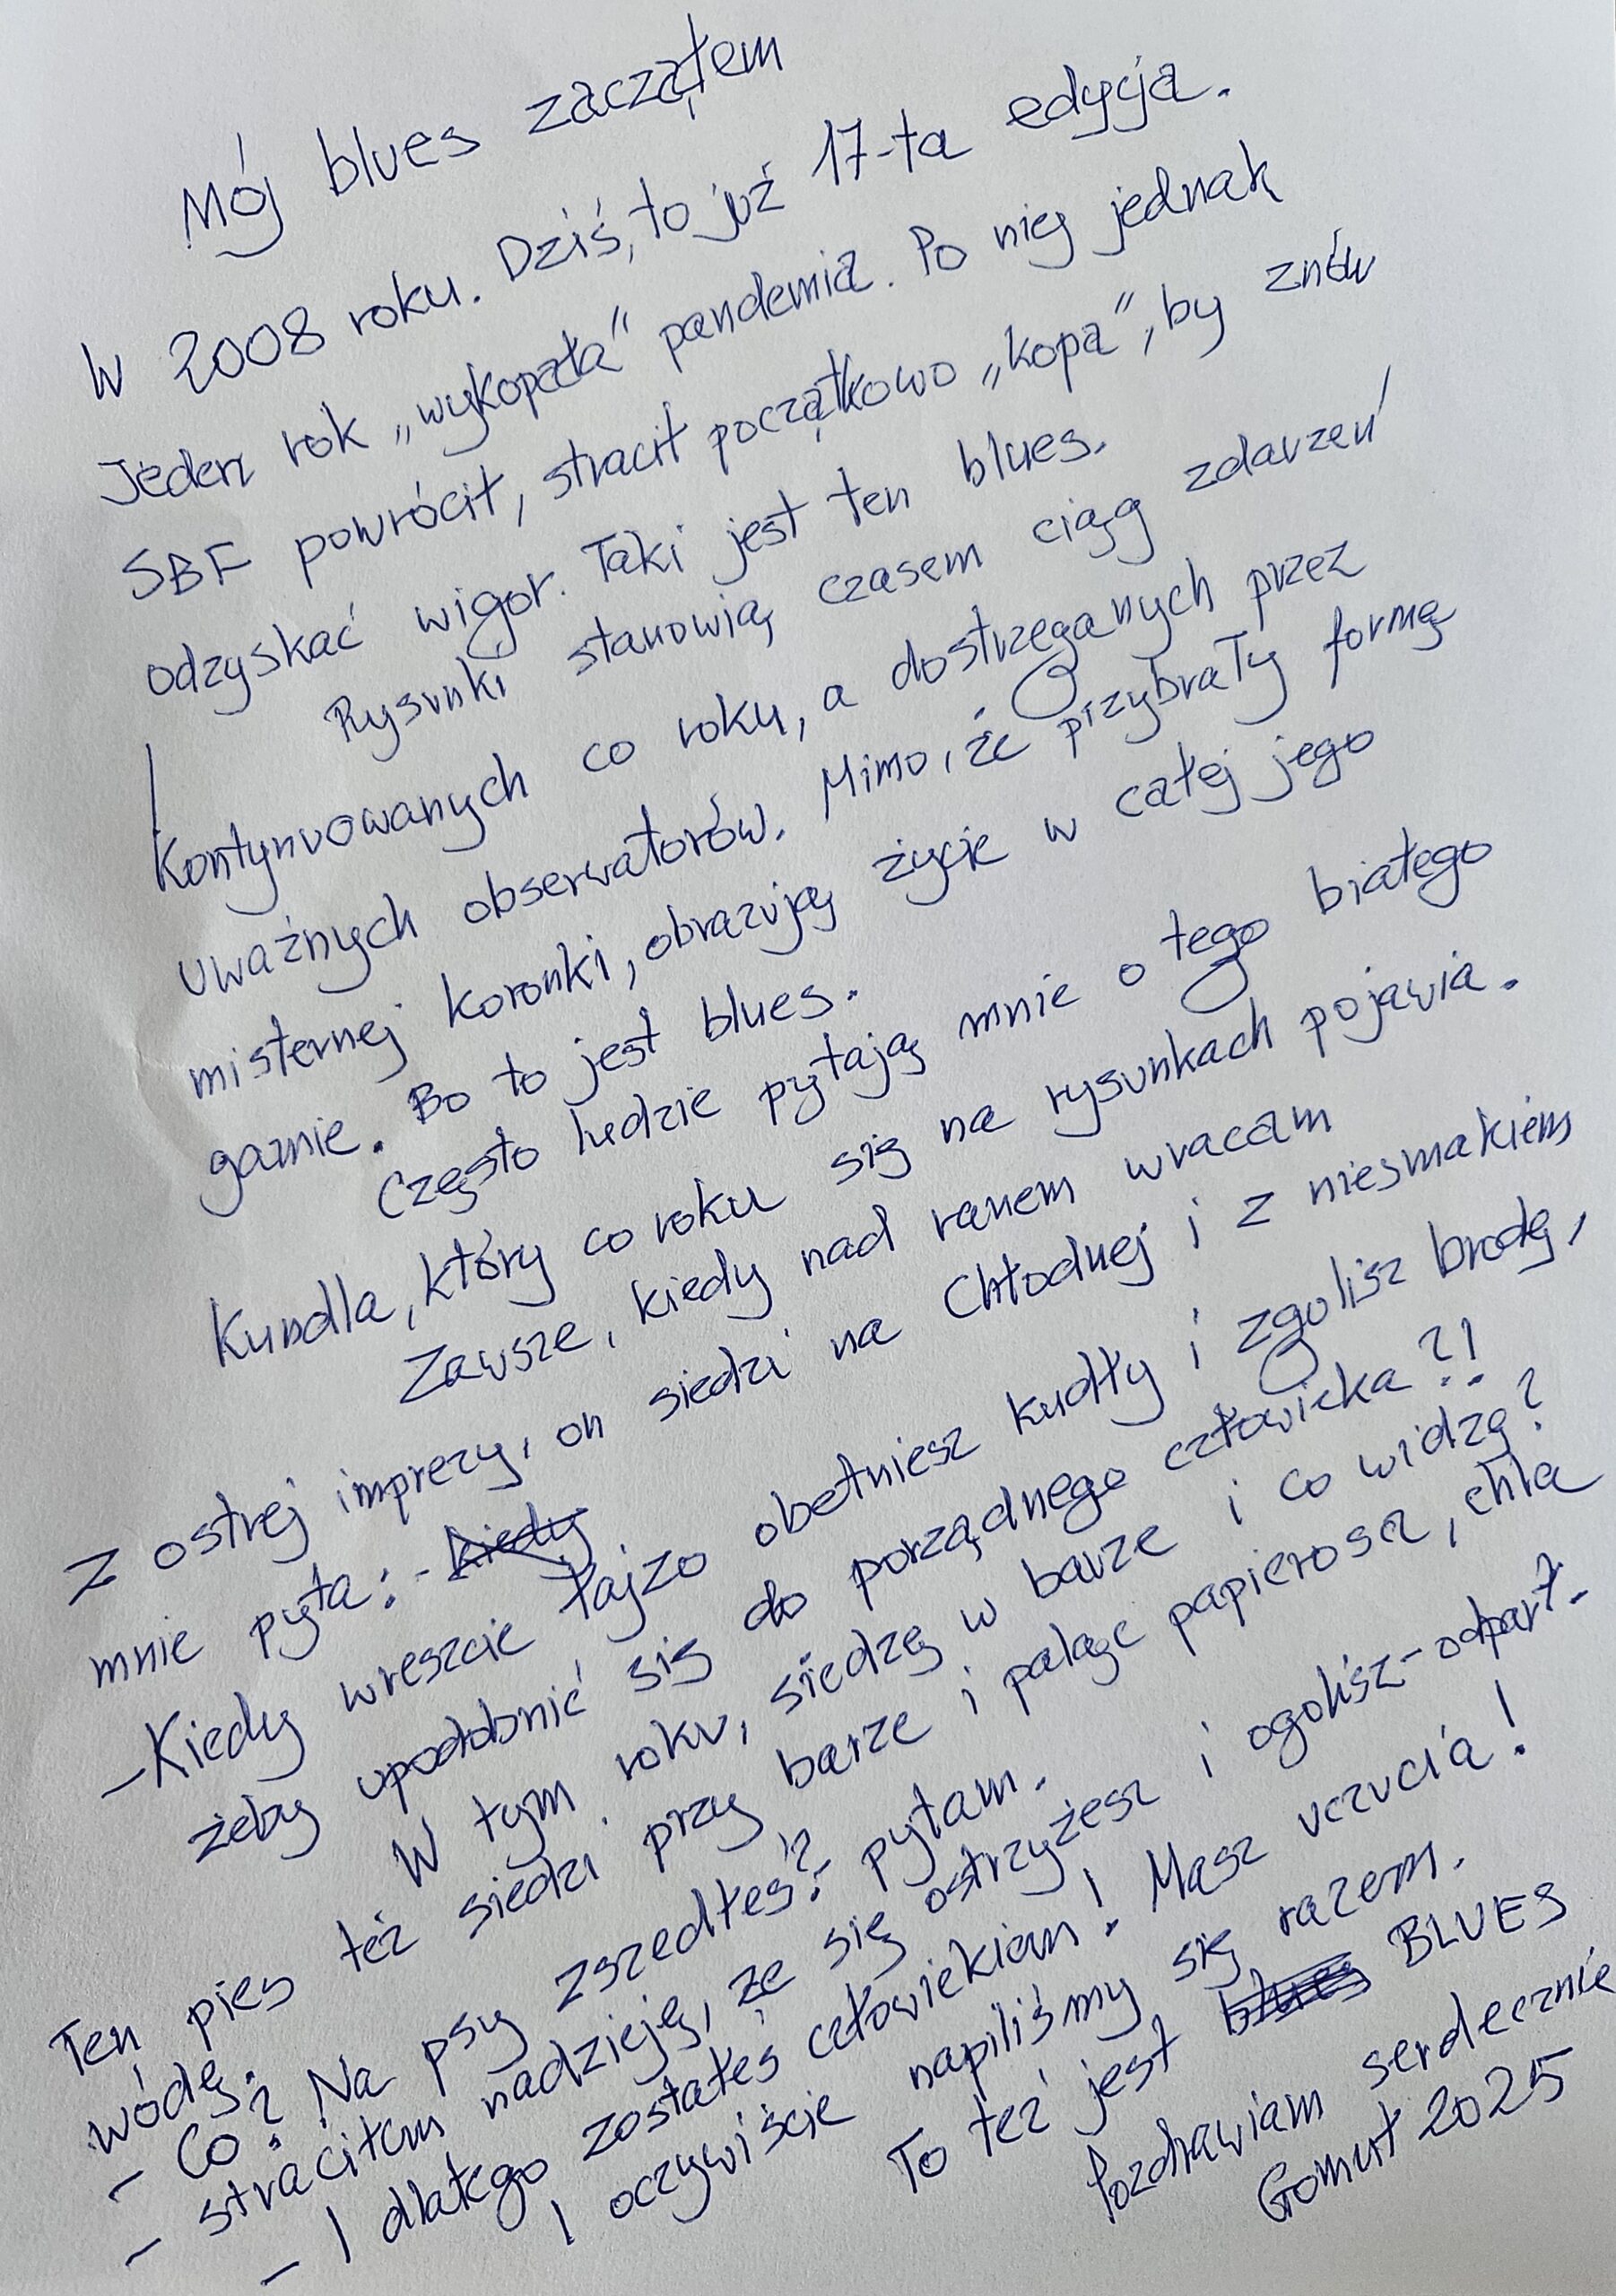 Mój blues zacząłem
w 2008 roku. Dziś, to już 17-ta edycja.
Jeden rok „wykopała" pandemia. Po niej jednak
SBF powrócił, stracił początkowo „kopa", by znów
odzyskać wigor. Taki jest ten blues.
Rysunki stanowią czasem ciąg zdarzeń
kontynuowanych co roku, a dostrzeganych przez
uważnych obserwatorów. Mimo, że przybrały formę
misternej koronki, obrazują życie w całej jego
gamie. Bo to jest blues.
Często ludzie pytają mnie o tego białego
kundla, który co roku się na rysunkach pojawia.
Zawsze, kiedy nad ranem wracam
z ostrej imprezy, on siedzi na Chłodnej i z niesmakiem
mnie pyta: - kiedy
- Kiedy wreszcie łajzo obetniesz kudły i zgolisz brodę,
żeby upodobnić się do porządnego człowieka?!
W tym roku, siedzę w barze i co widzę?
Ten pies też siedzi przy barze i paląc papierosa, chla
wódę.
- Co? Na psy zszedłeś? - pytam.
- straciłem nadzieję, że się ostrzyżesz i ogolisz - odparł.
- I dlatego zostałeś człowiekiem! Masz uczucia!
I oczywiście napiliśmy się razem.
To też jest blues BLUES
Pozdrawiam serdecznie
Gomuł 2025